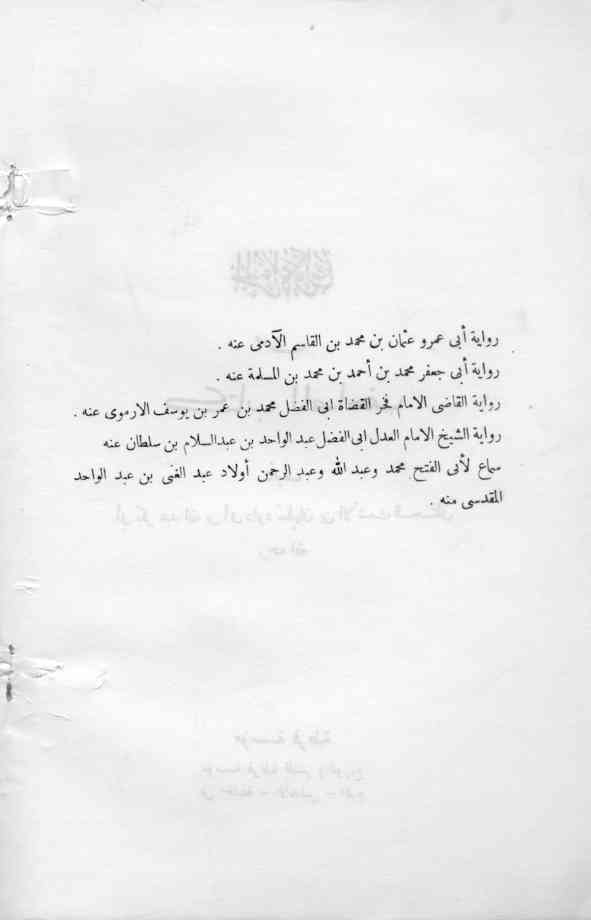 رواية أبى عمرو عثمان بن محمد بن القاسم الآدمى عنه .
رواية أبى جعفر محمد بن أحمد بن محمد بن المسلمة عنه .
رواية القاضى الامام فخر القضاة ابى الفضل محمد بن عمر بن يوسف الارموى عنه .
رواية الشيخ الامام العدل ابى الفضل عبد الواحد بن عبدالسلام بن سلطان عنه
سماع لأبى الفتح محمد وعبد الله وعبد الرحمن أولاد عبد الغنى بن عبد الواحد
المقدسى منه .